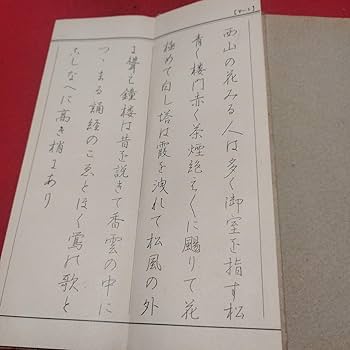 (21-1)
西山の花みる人は多く御室を指す松
青く楼門赤く茶煙絶えくに颺りて花
極めて白し塔は霞を洩れて松風の外
に聳え鐘楼は昔を説きて香雲の中に
つゝまる 誦経のこゑとほく鶯の歌と
こしなへに高き梢にあり